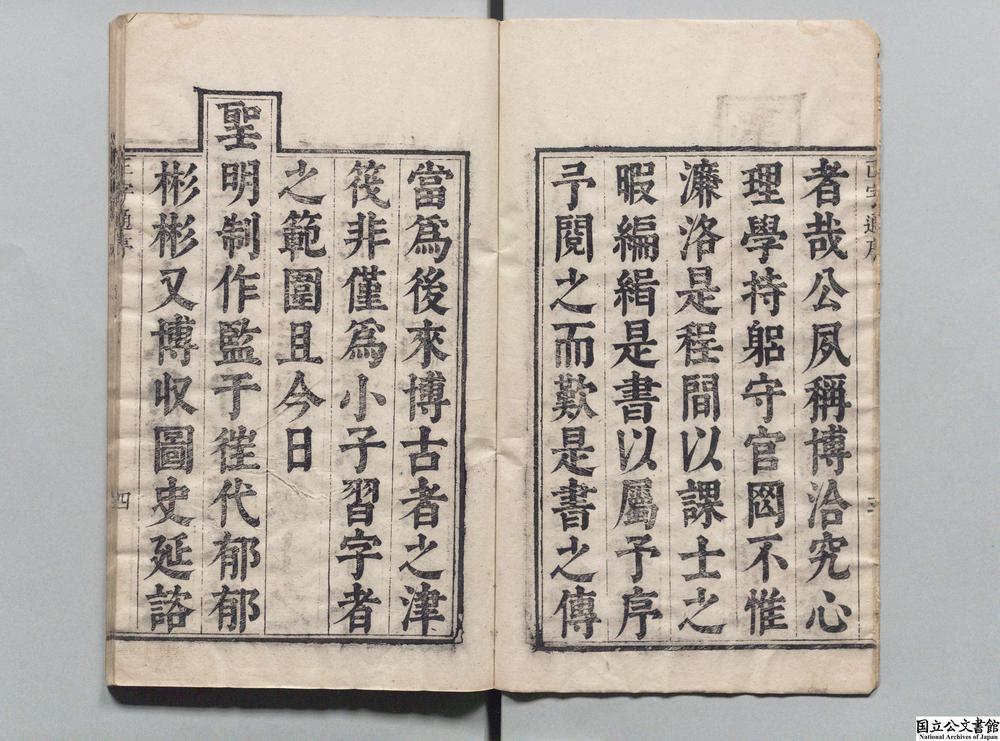 者哉公夙稱博洽究心
理學持躬守官罔不惟
濂洛是程間以課士之
暇編緝是書以屬予序
予閱之而歎是書之傳
當爲後來博古者之津
筏非僅爲小子習字者
之範圍且今日
聖明制作監于徃代郁郁
彬彬又博收圖史延諮
四
国立公文書館
National Archives of Japan